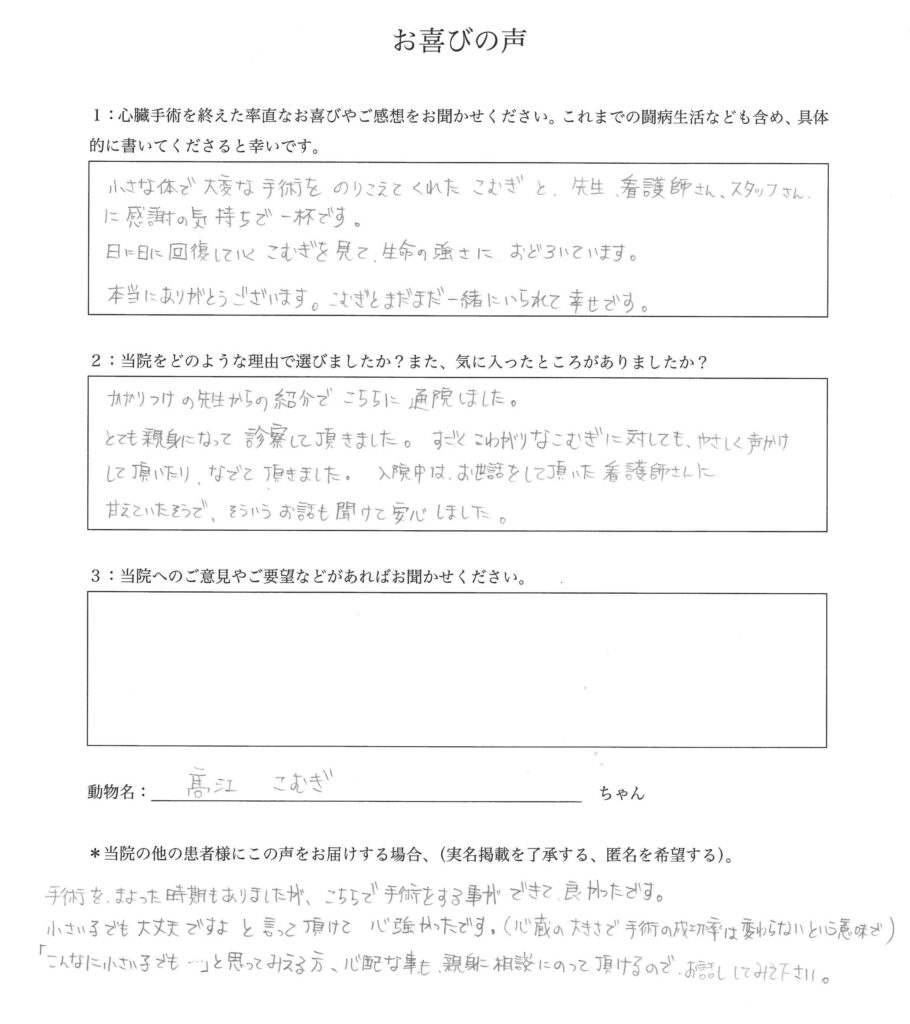 お喜びの声
1：心臓手術を終えた率直なお喜びやご感想をお聞かせください。これまでの闘病生活なども含め、具体
的に書いてくださると幸いです。
小さな体で大変な手術をのりこえてくれたこむぎと、先生、看護師さん、スタッフさん、
に感謝の気持ちで一杯です。
日に日に回復していくこむぎを見て、生命の強さにおどろいています。
本当にありがとうございます。こむぎとまだまだ一緒にいられて幸せです。
2：当院をどのような理由で選びましたか？また、気に入ったところがありましたか？
かかりつけの先生からの紹介でこちらに通院しました。
とても親身になって診察して頂きました。すごくこわがりなこむぎに対しても、やさしく声かけ
して頂いたり、なでて頂きました。入院中は、お世話をして頂いた看護師さんに
甘えていたそうで、そういうお話も聞けて安心しました。
3：当院へのご意見やご要望などがあればお聞かせください。
動物名：髙江 こむぎ ちゃん
＊当院の他の患者様にこの声をお届けする場合、（実名掲載を了承する、匿名を希望する）。
手術を、まよった時期もありましたが、こちらで手術をする事ができて、良かったです。
小さい子でも大丈夫ですよと言って頂けて心強かったです。（心蔵の大きさで手術の成功率は変わらないという意味で）
「こんなに小さい子でも…」と思ってみえる方、心配な事も、親身に相談にのって頂けるので、お話ししてみて下さい。